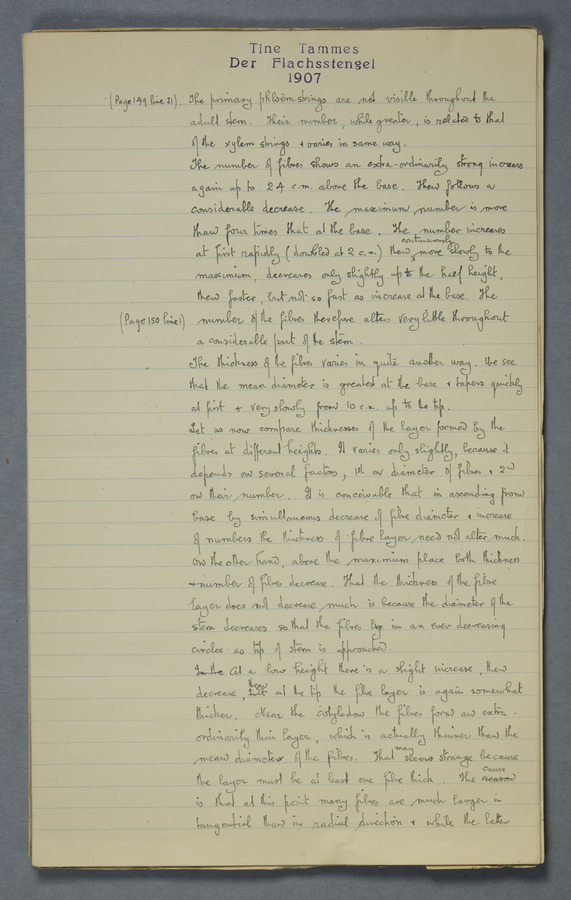 Tine Tammes
Der Flachsstengel
1907
(Page 149 line 21). The primary phloëm strings are not visible throughout the
adult stem. Their number, while greater, is related to that
of the xylem strings & varies in same way.
The number of fibres shows an extra-ordinarily strong increase
again up to 24 c.m. above the base. Then follows a
considerable decrease. The maximum number is more
than four times that at the base. The number increases
at first rapidly (doubled at 2 c.m.) then continuously more slowly to the
maximum, decreases only slightly up to the half height,
then faster, but not so fast as increase at the base. The
(Page 150 line 1) number of the fibres therefore alters very little throughout
a considerable part of the stem.
The thickness of the fibres varies in quite another way. We see
that the mean diameter is greatest at the base & tapers quickly
at first & very slowly from 10 c.m. up to the tip.
Let us now compare thicknesses of the layer formed by the
fibres at different heights. It varies only slightly, because it
depends on several factors, 1st on diameter of fibres & 2nd
on their number. It is conceivable that in ascending from
base by simultaneous decrease of fibre diameter & increase
of numbers the thickness of fibre layer need not alter much.
On the other hand, above the maximum place both thickness
& number of fibres decrease. That the thickness of the fibre
layer does not decrease much is because the diameter of the
stem decreases so that the fibres in an ever decreasing
circle as tip of stem is approached.
In the At a low height there is a slight increase, then
decrease, then at the tip the fibre layer is again somewhat
thicker. Near the cotyledon the fibres form an extra-
ordinarily thin layer, which is actually thinner than the
mean diameter of the fibres. That may seems strange because
the layer must be at least one fibre thick. The reason cause
is that at this point many fibres are much larger in
tangential than in radial direction & while the latter